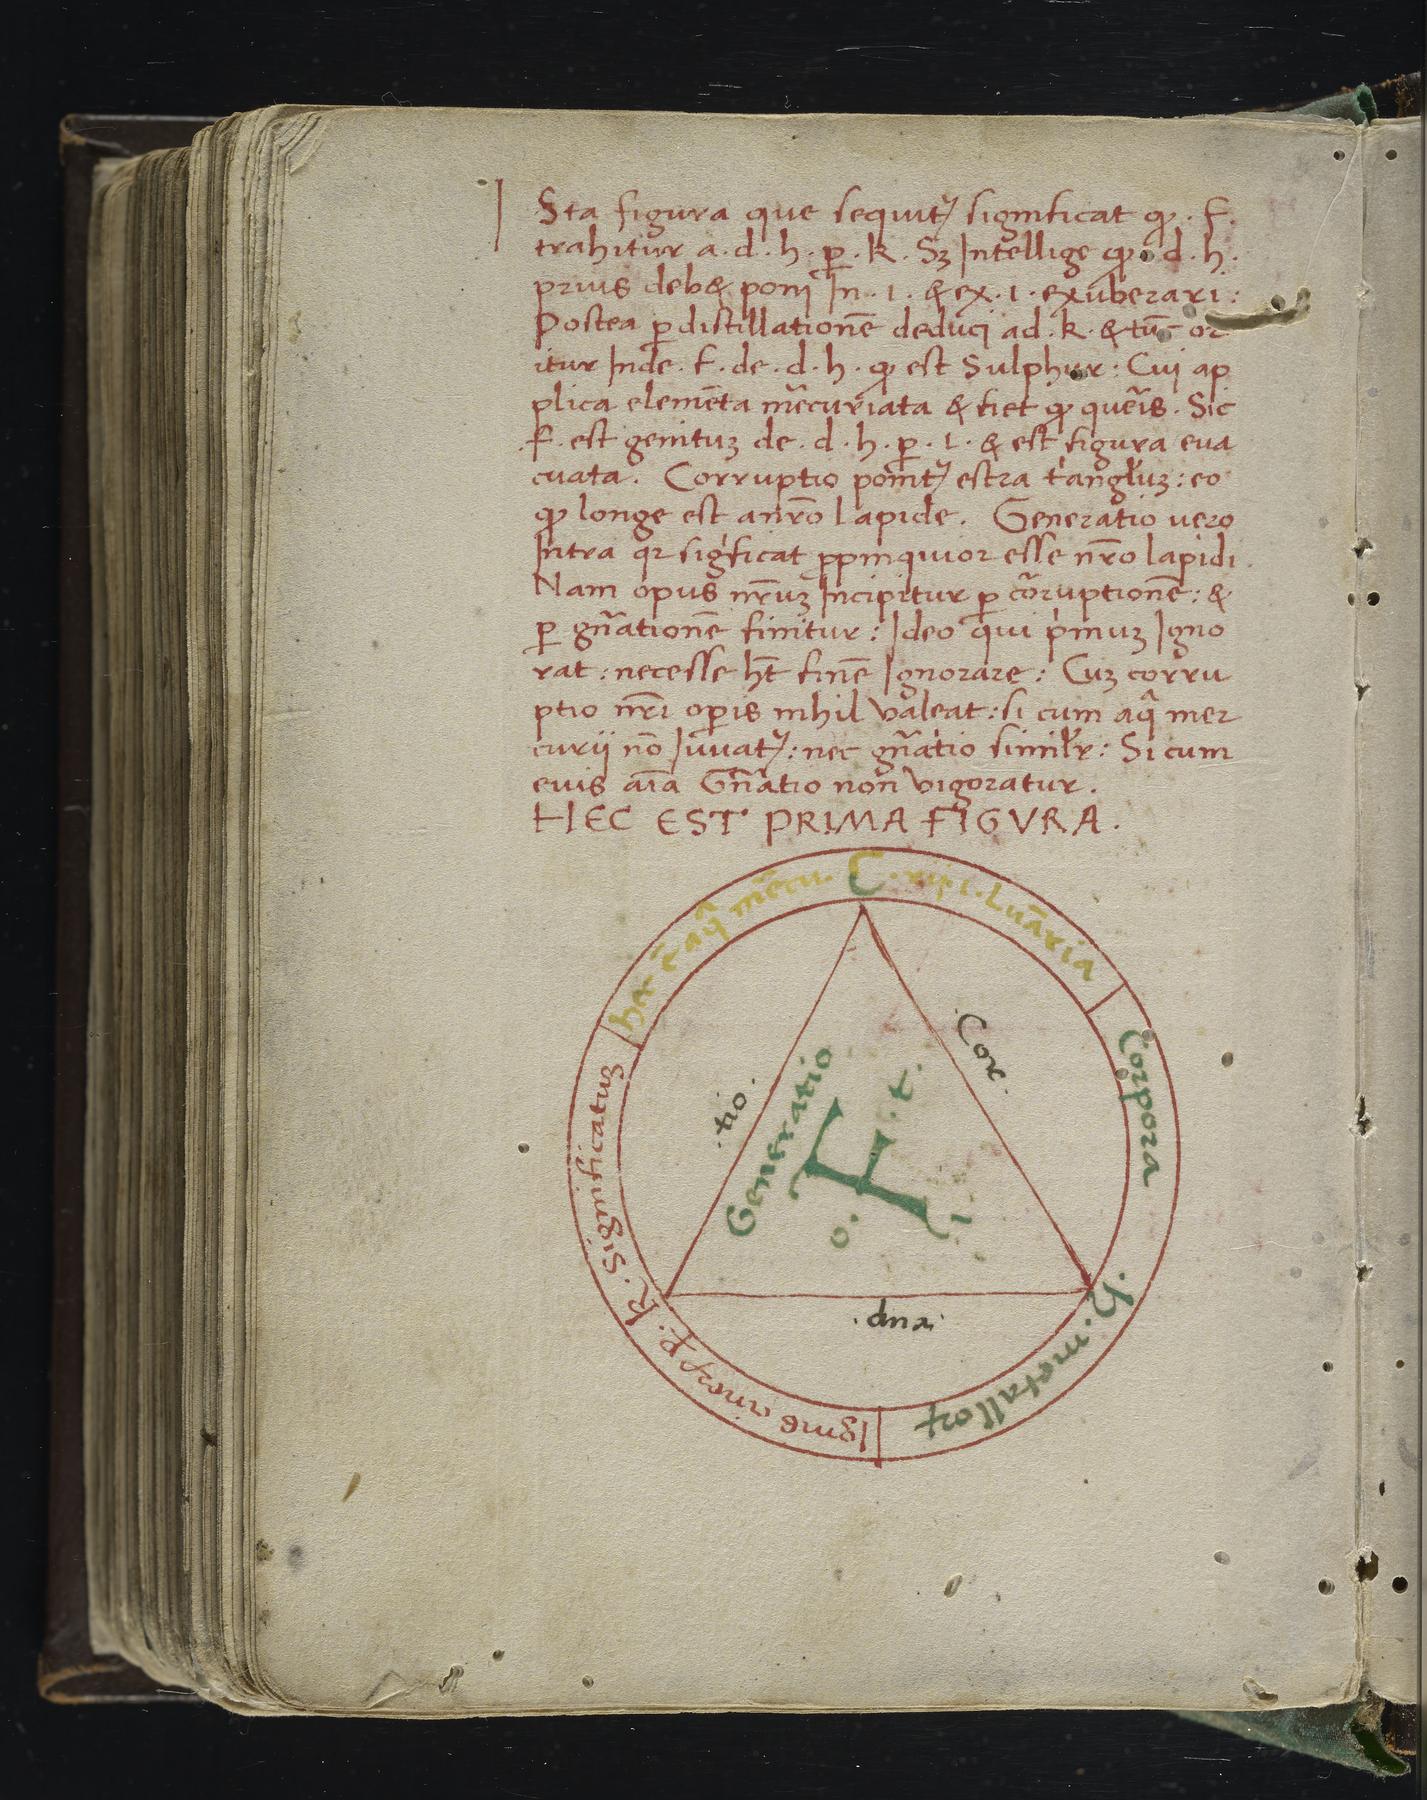 ISta figura que sequit̃ significat qȝ . F.
trahitur a . d . h . ꝑ . k . Sȝ Intellige qȝ . d . h .
prius deb& poni In . I . & ex . I . exuberari :
Postea ꝑ distillationē deduci ad . k . & tūc or
itur Inde . F . de . d . h . qȝ est Sulphur : Cui ap
plica elemēta m̃curiata & fiet qȝ querĩs . Sic
. F . est genituȝ de . d . h . ꝑ . I . & est figura eua
cuata . Corruptio ponit̃ estra tꝰangluȝ : eo
qȝ longe est a nr̃o lapide . Generatio uero
Intra qr sigꝰficat ꝓpinquior esse nr̃o lapidi .
Nam opus nr̃uȝ Incipitur ꝑ cõruptionē : &
ꝑ gñationē finitur : Ideo qui pꝰmuȝ Igno
rat : necesse ht̃ finē Ignorare : Cuȝ corru
ptio nr̃i opis nihil valeat : si cum aq̃ mer
curii nō Iuuat̃ : nec gñatio simiłr : Si cum
euis aĩa Gñatio non vigoratur .
HEC EST PRIMA FIGVRA .
hec ē aq̃ m̃cu . C . Luãria
Corpora . h . metalloꝝ
Significatuȝ . k .
Cor .
. tio .
Generatio
. t .
F
o .
I